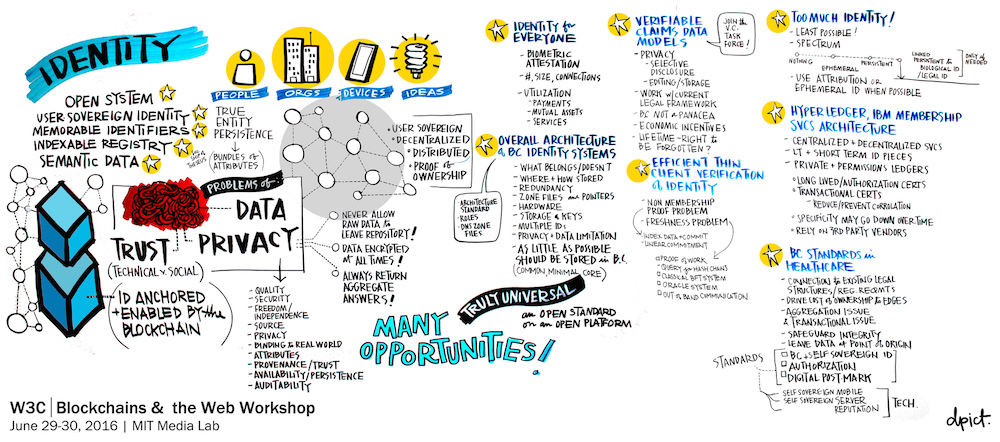 IDENTITY
OPEN SYSTEM
USER SOVEREIGN IDENTITY
MEMORABLE IDENTIFIERS
INDEXABLE REGISTRY
SEMANTIC DATA
PEOPLE
ORGS
DEVICES
IDEAS
TRUE
ENTITY
PERSISTENCE
BUNDLES of
ATTRIBUTES
• USER SOVEREIGN
• DECENTRALIZED
• DISTRIBUTED
• PROOF of
OWNERSHIP
PROBLEMS of...
DATA
TRUST
(TECHNICAL v. SOCIAL)
PRIVACY
ID ANCHORED
+ ENABLED by the
BLOCKCHAIN
NEVER ALLOW
RAW DATA to
LEAVE REPOSITORY!
DATA ENCRYPTED
at ALL TIMES!
ALWAYS RETURN
AGGREGATE
ANSWERS!
- QUALITY
- SECURITY
- FREEDOM/
INDEPENDENCE
- SOURCE
- PRIVACY
- BINDING & REAL WORLD
- ATTRIBUTES
- PROVENANCE/TRUST
- AVAILABILITY/PERSISTENCE
- AUDITABILITY
MANY
OPPORTUNITIES!
TRULY UNIVERSAL
an OPEN STANDARD
on an OPEN PLATFORM
IDENTITY for
EVERYONE
- BIOMETRIC
ATTESTATION
- #, SIZE, CONNECTIONS
- UTILIZATION
- PAYMENTS
- MUTUAL ASSETS
- SERVICES
OVERALL ARCHITECTURE
of BC IDENTITY SYSTEMS
- WHAT BELONGS/DOESN'T
- WHERE + HOW STORED
- REDUNDANCY
- ZONE FILES w/ POINTERS
- HARDWARE
- STORAGE & KEYS
- MULTIPLE IDs
- PRIVACY + DATA LIMITATION
- AS LITTLE as POSSIBLE
SHOULD BE STORED in B.C.
(COMMON, MINIMAL CORE)
- ARCHITECTURE
STANDARD
- ROLES
- DNS ZONE
FILES
VERIFIABLE
CLAIMS DATA
MODELS
JOIN the
V.C. TASK
FORCE!
- PRIVACY
- SELECTIVE
DISCLOSURE
- EDITING/STORAGE
- WORK w/ CURRENT
LEGAL FRAMEWORK
- BC NOT a PANACEA
- ECONOMIC INCENTIVES
- LIFETIME - RIGHT to
BE FORGOTTEN?
EFFICIENT THIN
CLIENT VERIFICATION
of IDENTITY
- NON MEMBERSHIP
PROOF PROBLEM
- FRESHNESS PROBLEM
- INDEX DATA + COMMIT
- LINEAR COMMITMENT
PROOF of WORK
QUERY for HASH CHAINS
CLASSICAL BFT SYSTEM
ORACLE SYSTEM
OUT of BAND COMMUNICATION
TOO MUCH IDENTITY!
- LEAST POSSIBLE!
- SPECTRUM
NOTHING
EPHEMERAL
PERSISTENT
LINKED
PERSISTENT &
BIOLOGICAL ID
/LEGAL ID
ONLY IF
NEEDED
- USE ATTRIBUTION or
EPHEMERAL ID WHEN POSSIBLE
HYPERLEDGER, IBM MEMBERSHIP
SVCS ARCHITECTURE
- CENTRALIZED + DECENTRALIZED SVCS
- LT + SHORT TERM ID PIECES
- PRIVATE + PERMISSIONS LEDGERS
• LONG LIVED/AUTHORIZATION CERTS
• TRANSACTIONAL CERTS
- REDUCE/PREVENT CORRELATION
• SPECIFICITY MAY GO DOWN OVER TIME
• RELY ON 3RD PARTY VENDORS
BC STANDARDS in
HEALTHCARE
- CONNECTION to EXISTING LEGAL
STRUCTURES/REG. REQMTS
- DRIVE COST of OWNERSHIP to EDGES
- AGGREGATION ISSUE
& TRANSACTIONAL ISSUE
- SAFEGUARD INTEGRITY
- LEAVE DATA at POINT of ORIGIN
STANDARDS
BC + SELF SOVEREIGN ID
AUTHORIZATION
DIGITAL POST MARK
SELF SOVEREIGN MOBILE
SELF SOVEREIGN SERVER
REPUTATION
TECH.
W3C | Blockchains & the Web Workshop
June 29-30, 2016 | MIT Media Lab
dpict.